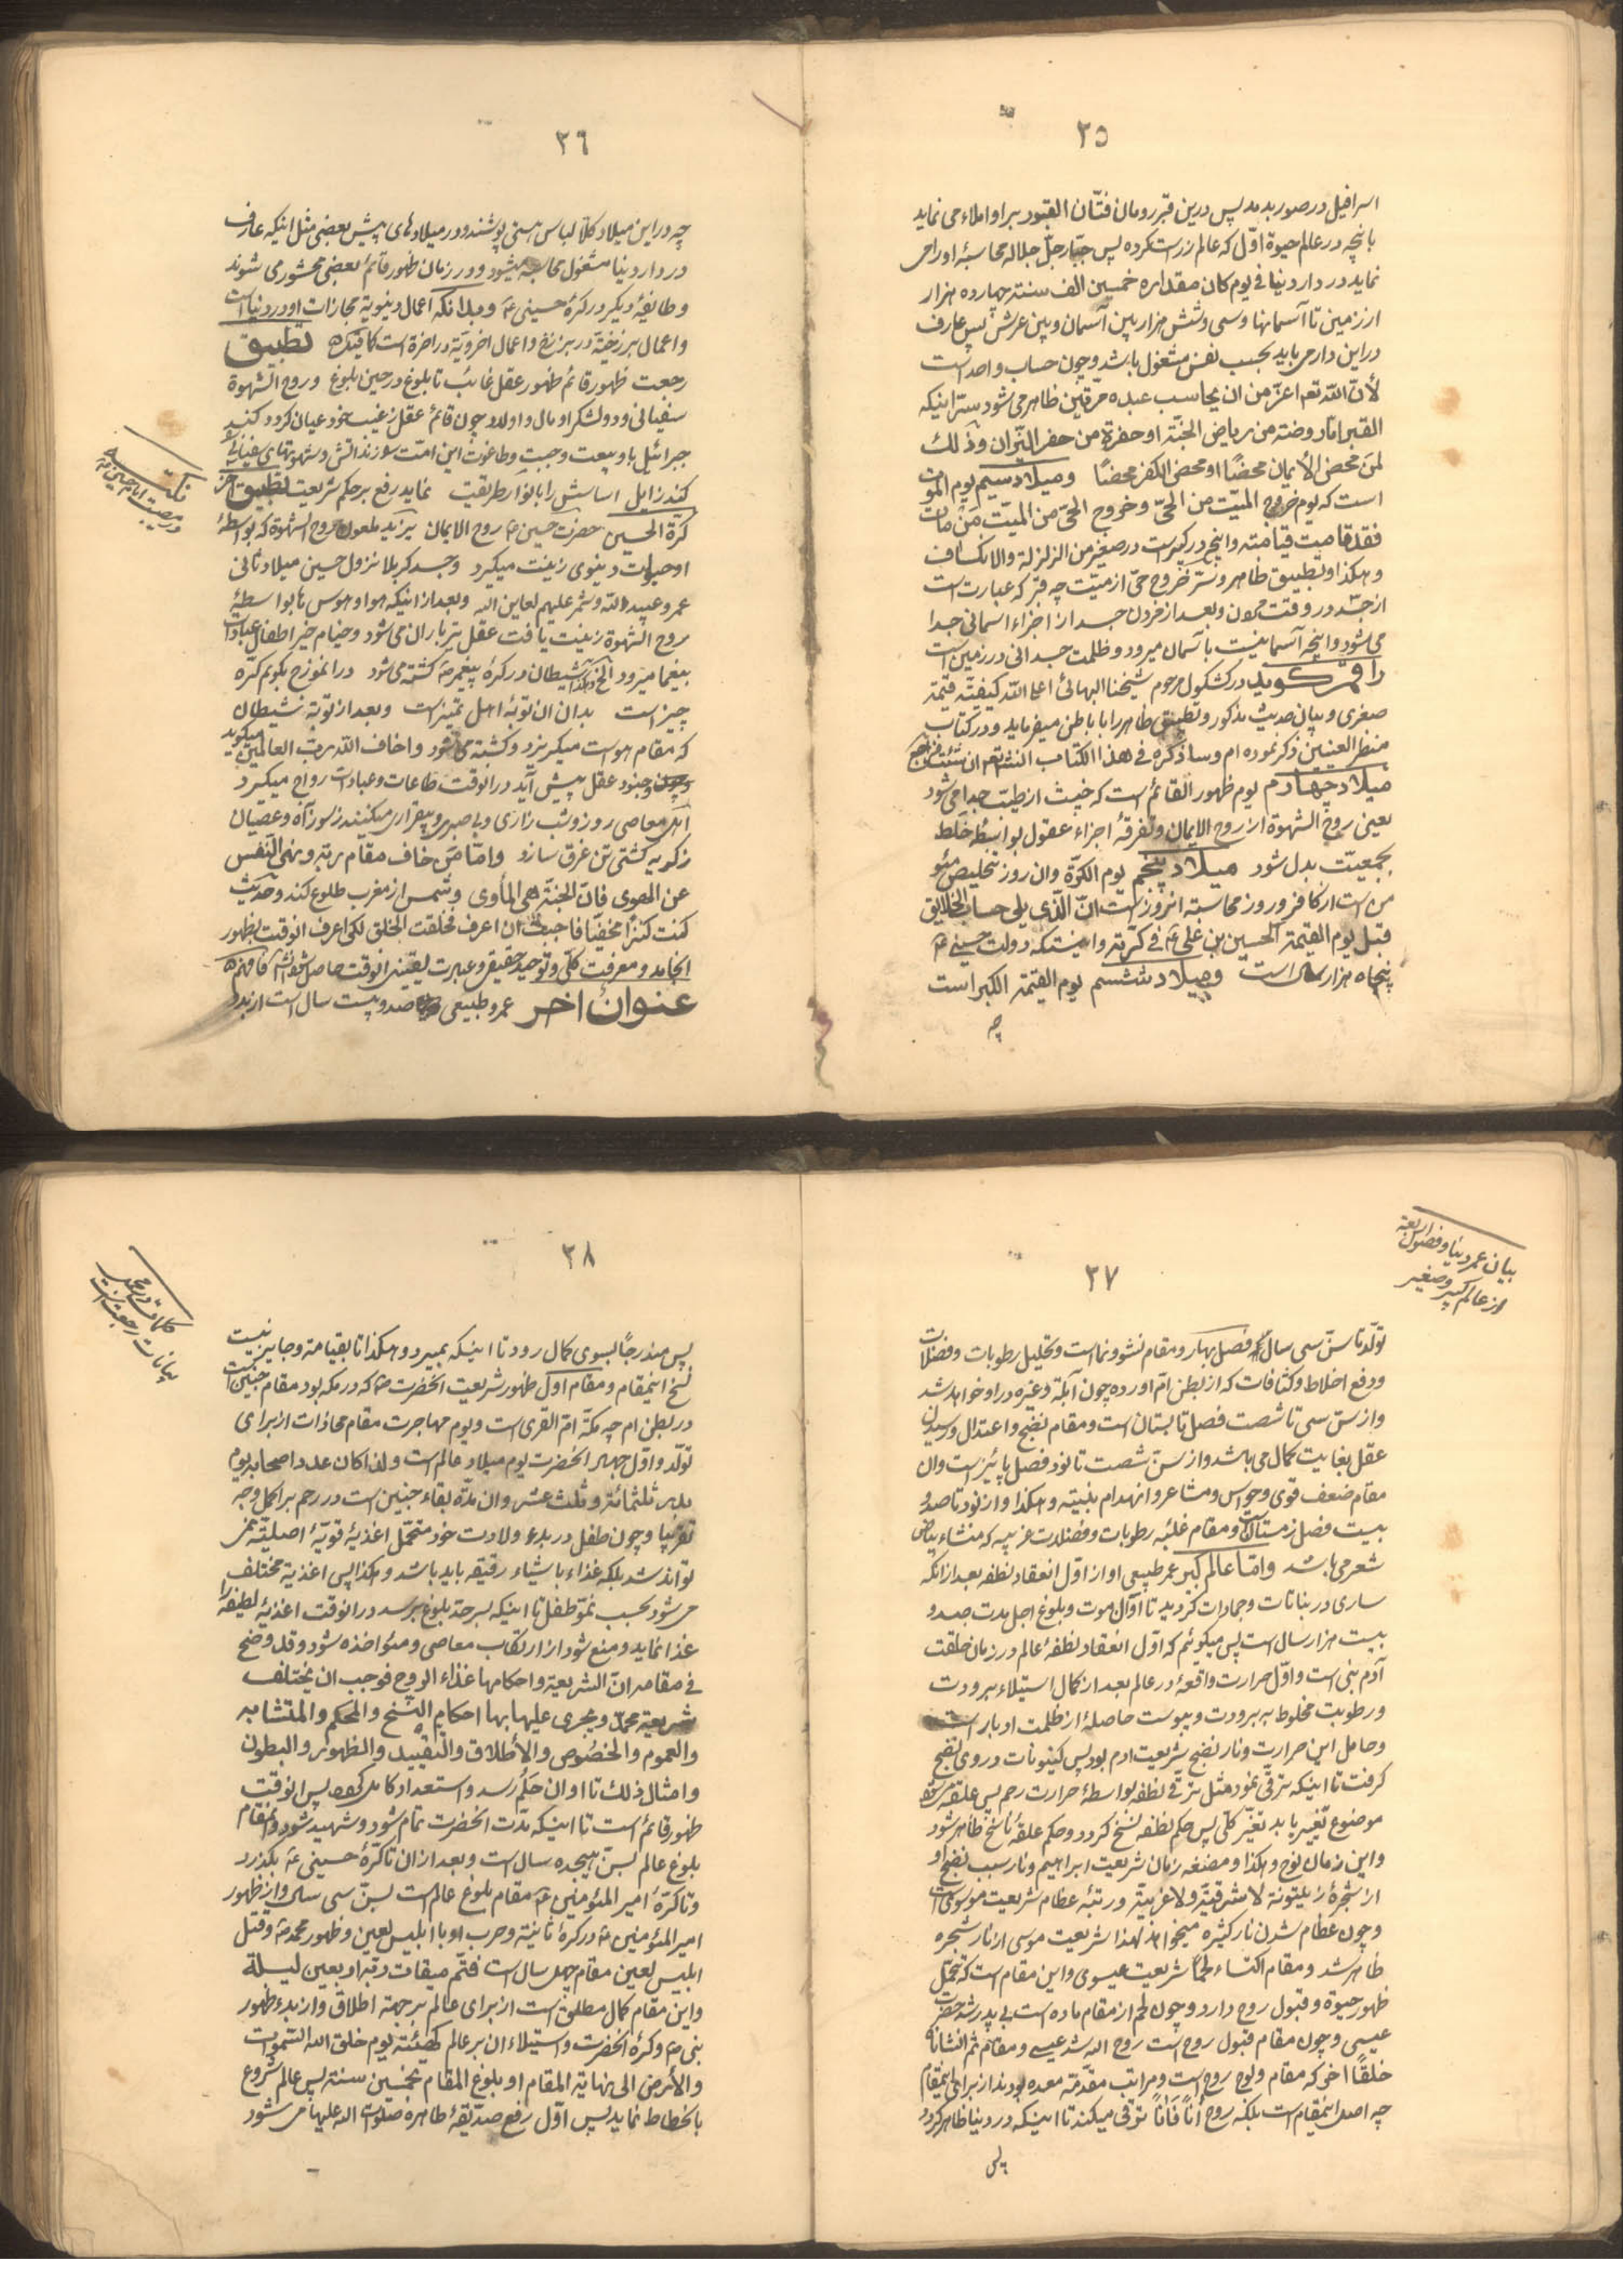 ۳۵
اسرافیل در صور بدمد پس درین قبر رومان فتّان القبور بر او املاء می نماید
بانچه در عالم حیوة اوّل که عالم زر است کرده پس جبّار جلّ جلاله محاسبهٔ او را می
نماید در دار دنیا فی یوم کان مقداره خمسین الف سنته چهارده هزار
از زمین تا آسمانها و سی و شش هزار بین آسمان و بین عرش پس عارف
در این دار می باید بحسب نفس مشغول باشد و چون حساب واحد است
لأنّ اللّه تعم اعزّ من ان یحاسب عبده مرّقین ظاهر می شود سرّ اینکه
القبر امّا روضته من ریاض الجنّة او حفرة من حفر النیّران وذلك
لمن محض الأیمان محضًا او محض الکفر محضًا و میلاد سیم یوم الموت
است که یوم خروج المیّت من الحیّ و خروج الحیّ من المیّت من مات
فقد قامیت قیامته و انچه در کبیر است در صغیر من الزلزلة والانکساف
و هکذا و تطبیق ظاهر و سرّ خروج حیّ از میّت چه قبر که عبارت است
از جسد در وقت مردن و بعد از مردن جسد از اجزاء اسمانی جدا
می شود و انچه آسمانیست بآسمان میرود و ظلمت جسدانی در زمین است
راقم گوید در کشکول مرحوم شیخنا البهائی اعلا اللّه کیفیّة قیمة
صغری و بیان حدیث مذکور و تطبیق ظاهر را با باطن میفرماید و در کتاب
منظر العینین ذکر نموده ام و ساذکره فی هذا الکتاب انشّ تعم ان شئت فراجع
میلاد چهارم یوم ظهور القائم است که خبیث از طیّب جدا می شود
یعین روح الشهوة از روح الایمان و تفرقهٔ اجزاء عقول بواسطهٔ خلط
بجمعیّت بدل شود میلاد پنجم یوم الکرّة و ان روز تخلیص مئو
من است از کافر و روز محاسبه انروز است انّ الّذی یلی حساب الخلایق
قبل یوم القیمة الحسین بن علی ع فی کرّته و اینستکه دولت حسینی ع
پنجاه هزار سال است و میلاد ششم یوم القیمة الکبر است
چه
۳٦
چه در این میلاد کلاً لباس هستی پوشند و در میلادهای پیش بعضی مثل اینکه عارف
در دار دنیا مشغول محاسبه میشود و در زمان ظهور قائم بعضی محشور می شوند
و طائفهٔ دیگر در کرّهٔ حسینی ع و بدانکه اعمال دنیویة مجازات او در دنیا است
و اعمال برزخیّة در برزخ و اعمال اخرویّة در اخرة است کما قیکره تطبیق
رجعت ظهور قائم ظهور عقل غائب تا بلوغ در حین بلوغ و روح الشهوة
سفیانی و دو لشکر او مال و اولاد چون قائم عقل از غیب خود عیان گردد کند
جبرائیل باو بیعت و جبت و طاغوت این امّت سوزند اتش و شهوتهای سفیانی
کند زایل اساسش را بانوار طریقت نماید رفع بر حکم شریعت تطبیق آخر
کرّة الحسین حضرت حسین ع روح الایمان براید ملعون روح الشهوة که بواسطهٔ
او حیات دنیوی زینت میکیرد و جسد کربلا نزول حسین میلاد ثانی
عمرو عبید اللّه و شمر علیهم لعاین اللّه و بعد از اینکه هوا و هوس تا بواسطهٔ
روح الشهوة زینت یافت عقل تیرباران می شود و خیام خیر اطفال عبادات
بیغما میرود الخ و لهذا شیطان در کرّهٔ پیغمبر ص کشته می شود در انموزج بکویم کرّه
چیز است بدان ان توبهٔ اهل تمیز است و بعد از توبة شیطان
که مقام هو است میکریزد و کشته می شود و اخاف اللّه ربّ العالمین میکوید
و چون جنود عقل پیش آید در انوقت طاعات و عبادات رواج میکیرد
اهل معاصی روز و شب زاری و با صبر و بیقراری میکنیند ز سوز آه و عصیان
ز گریه کشتی تن غرق سازد و امّا من خاف مقام ربّه و نهی النّفس
عن الهوی فانّ الجنّة هی المأوی و شمس از مغرب طلوع کند و حدیث
کنت کنزًا مخفیًا فاحببت ان اعرف فخلقت الخلق لکی اعرف انوقت بظهور
انجامد و معرفت کلّی و توحید حقیقی و عبارت یقینی انوقت حاصل شود انشآ فافهم
عنوان اخر عمر طبیعی صد و بیست سال است از بدو
نکته
در مصیبت امام حسین ع
۳۷
بیان عمر دنیا و فصول اربعة
از عالم کبیر و صغیر
تولّد تا سنّ سی سال فصل بهار و مقام نشو و نما است و تحلیل رطوبات و فضلات
و دفع اخلاط و کثافات که از بطن امّ اورده چون آبلة و غیره در او خواهد شد
و از سنّ سی تا شصت فصل تابستان است و مقام نضج و اعتدال و رسیدن
عقل بغایت کمال می باشد و از سنّ شصت تا نود فصل پائیز است و ان
مقام ضعف قوی و حواس و مشاعر و انهدام بنیته و هکذا و از نود تا صد و
بیست فصل زمستان است و مقام غلبهٔ رطوبات و فضلات غریبه که منشاء بیاض
شعر می باشد و امّا عالم کبیر عمر طبیعی او از اوّل انعقاد نطفه بعد از انکه
ساری در نباتات و جمادات کردید تا آوّان موت و بلوغ اجل مدت صد و
بیست هزار سال است پس میکوئیم که اوّل انعقاد نطفهٔ عالم در زمان خلقت
آدم نبی است و اوّل حرارت واقعهٔ در عالم بعد از کمال استیلاء برودت
و رطوبت مخلوط به برودت و یبوست حاصلهٔ از ظلمت ادبار است
و حامل این حرارت و نار نضج شریعت ادم بود پس کینونات در وی نضج
گرفت تا اینکه ترقّی نمود مثل ترقّی نطفه بواسطهٔ حرارت رحم پس علقه می شود
موضوع تغییر یابد تغیّر کلّی پس حکم نطفه نسخ کردد و حکم علقهٔ ناسخ ظاهر شود
و این زمان نوح و هکذا و مضغه زمان شریعت ابراهیم و نار سبب نضج او
از شجرهٔ زیتونة لا شرقیّة و لا غربیّة و رتبهٔ عظام شریعت موسوی است
و چون عظام شدن نار کثیره میخواهد لهذا شریعت موسی از نار شجره
ظاهر شد و مقام اکتساء لحمًا شریعت عیسوی و این مقام است که تحمّل
ظهور حیوة و قبول روح دارد و چون لحم از مقام ماده است بی پدر شد حضرت
عیسی و چون مقام قبول روح است روح اللّه شد عیسی و مقام ثم انشاناه
خلقًا اخر که مقام ولوج روح است و مراتب مقدّمة معدّه بودند از برای اینمقام
چه اصل اینمقام است بلکه روح اناً فاناً ترقی میکند تا اینکه در دنیا ظاهر کردد
پس
۳۸
پس مندرجًا بسوی کمال رود تا اینکه بمیرد و هکذا تا بقیامة و جایز نیست
نسخ اینمقام و مقام اوّل ظهور شریعت انحضرت ص که در مکه بود مقام جنین است
در بطن ام چه مکّة امّ القری است و یوم مهاجرت مقام محاذات از برای
تولّد و اوّل جهاد انحضرت یوم میلاد عالم است و لذا کان عدد اصحاب یوم
بدر ثلثمائة و ثلث عشر و ان مدّة بقاء جنین است در رحم بر اکمل وجه
تقریبًا و چون طفل در بدو ولادت خود متحمّل اغذیهٔ قویّة اصلیّة نمی
تواند شد بلکه غذاء باشیاء رقیقه باید باشد و هکذا پس اغذیة مختلف
می شود بحسب نموّ طفل تا اینکه بسر حدّ بلوغ برسد در انوقت اغذیهٔ لطیفه را
غذا نماید و منع شود از ارتکاب معاصی و مئواخذه شود و قد وضح
فی مقامه انّ الشریعة و احکامها غذاء الروح فوجب ان یختلف
شریعة محمّد و یجری علیها بها احکام النسخ والمحکم والمتشابه
والعموم والخصوص والأطلاق والتقیید والظهور والبطون
و امثال ذلك تا اوان حلم رسد و استعداد کامل کردد پس انوقت
ظهور قائم است تا اینکه مدّت انحضرت تمام شود و شهید شود و اینمقام
بلوغ عالم بسنّ هیجده سال است و بعد از ان تا کرّهٔ حسینی ع بکذرد
و تا کرّهٔ امیر المئومنین ع مقام بلوغ عالم است بسنّ سی سال و از ظهور
امیر المئومنین ع در کرهٔ ثانیّة و حرب او با ابلیس لعین و ظهور محمد ص و قتل
ابلیس لعین مقام چهل سال است فتمّ میقات ربّه اربعین لیلة
و این مقام کمال مطلق است از برای عالم بر جهة اطلاق و از بدء ظهور
نبی ص و کرّهٔ انحضرت و استیلاء ان بر عالم کهیئته یوم خلق اللّه السّموات
والأرض الی نهایة المقام او بلوغ المقام بخمسین سنته پس عالم شروع
بانحطاط نماید پس اوّل رفع صدّیقهٔ طاهرة صلوات اللّه علیها می شود